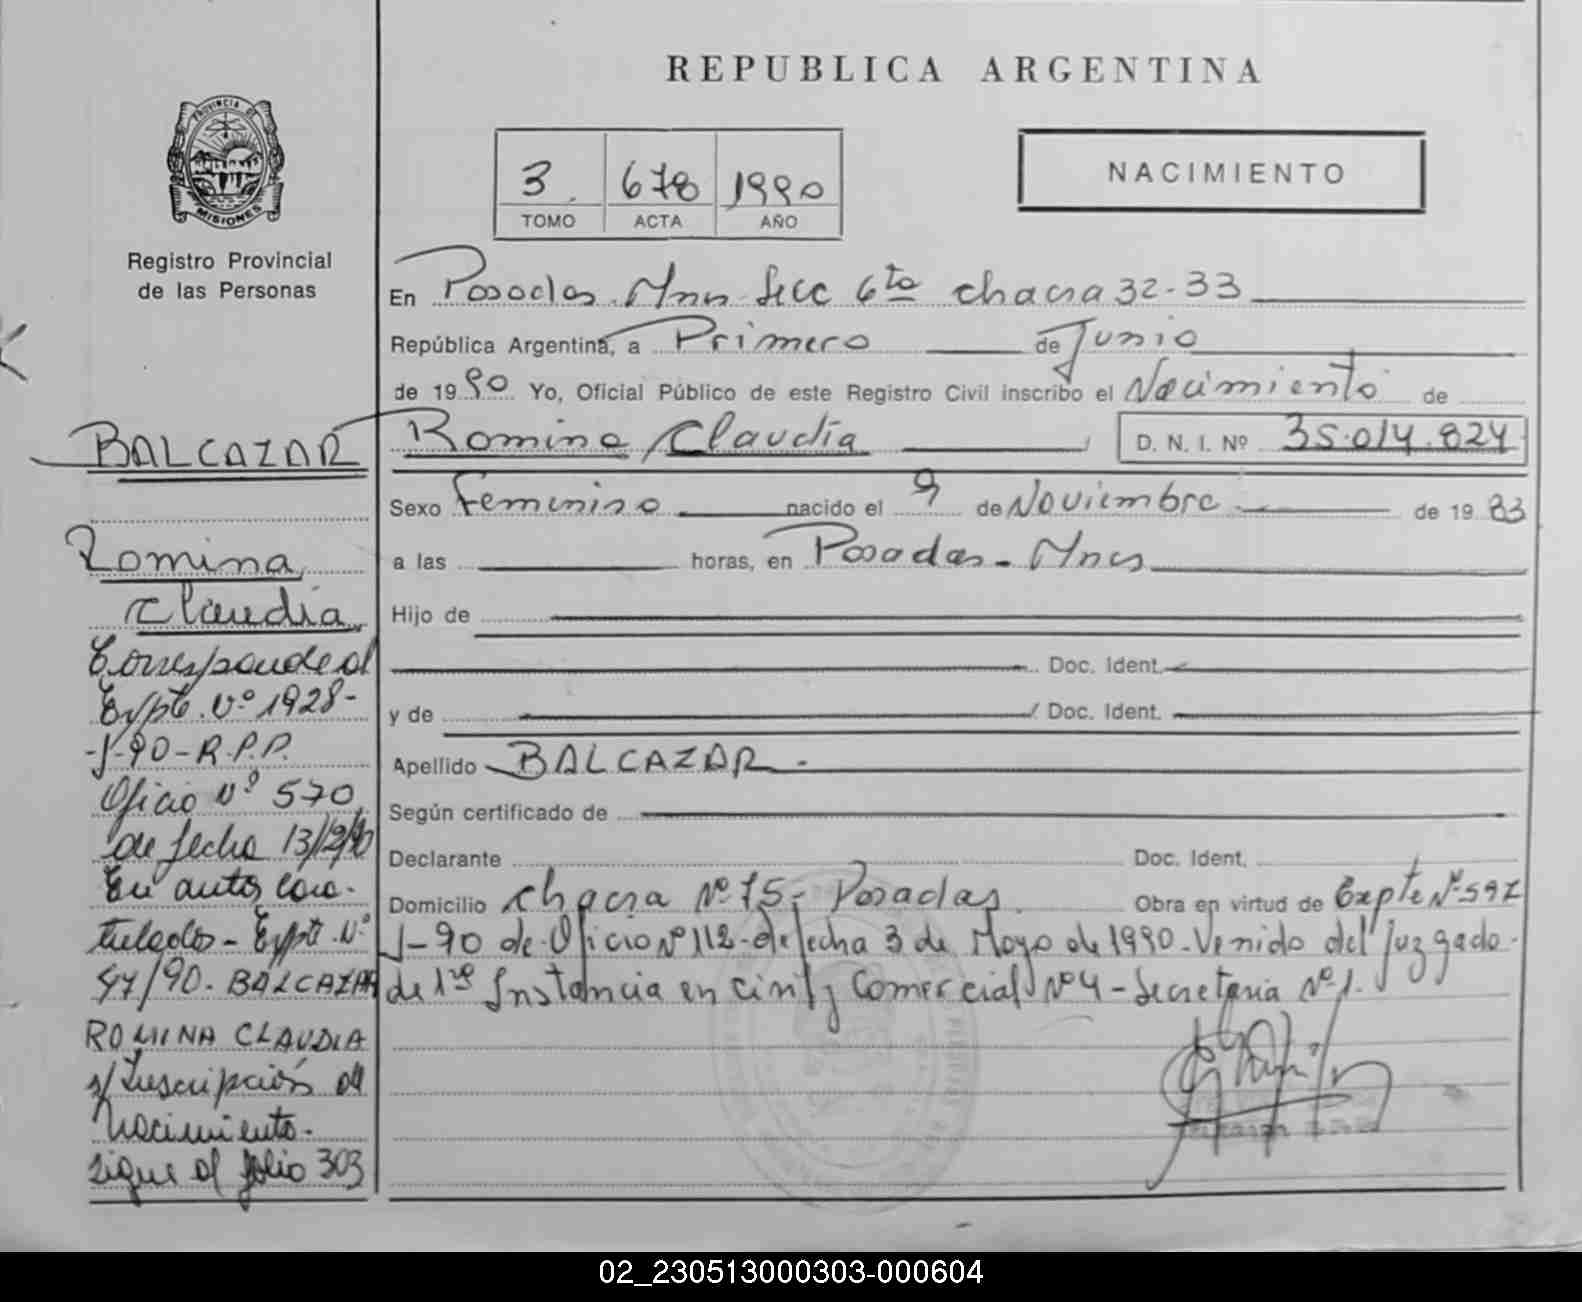 REPUBLICA ARGENTINA
PROVINCIA DE
MISIONES
Registro Provincial
de las Personas
3 678 1990
TOMO ACTA AÑO
NACIMIENTO
En Posadas Mnes Secc 6ta chacra 32-33
República Argentina, a Primero de Junio
de 1990 Yo, Oficial Público de este Registro Civil inscribo el Nacimiento de
Romina Claudia D. N. I. Nº 35.014.824
Sexo Femenino nacido el 9 de Noviembre de 1983
a las horas, en Posadas - Mnes
Hijo de
Doc. Ident.
y de Doc. Ident.
Apellido BALCAZAR.
Según certificado de
Declarante Doc. Ident.
Domicilio Chacra Nº 75 - Posadas. Obra en virtud de Expte Nº 597
J-90 de Oficio Nº 112 - de fecha 3 de Mayo de 1990 - Venido del Juzgado
de 1ra Instancia en Civil y Comercial Nº 4 - Secretaria Nº 1.
BALCAZAR
Romina
Claudia
Corresponde al
Expte. Nº 1928-
-J-90-R.P.P.
Oficio Nº 570
de fecha 13/12/90
En autos cara-
tulados - Expte. Nº
47/90. BALCAZAR
ROMINA CLAUDIA
s/ Inscripción de
Nacimiento.
sigue al folio 303
02_230513000303-000604